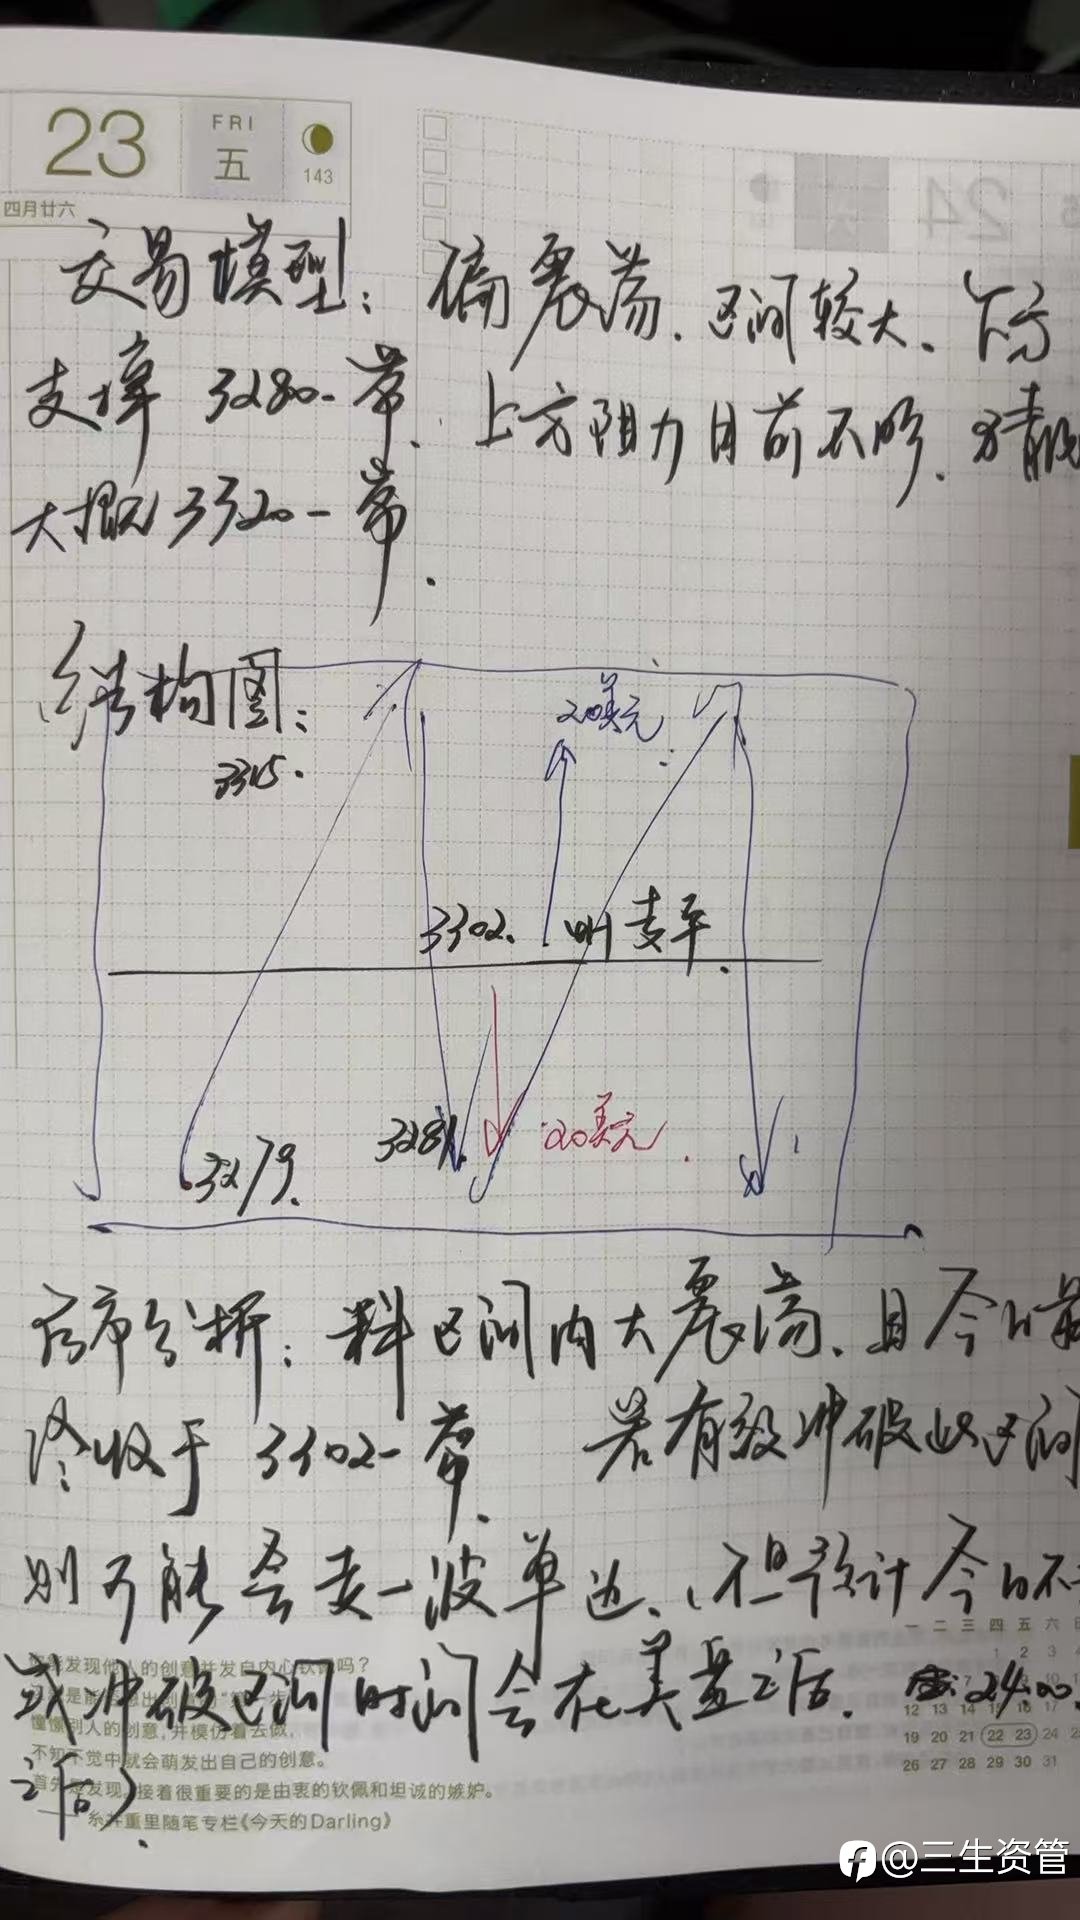 23
FRI
五
143
四月廿六
24
交易模型：偏震荡.区间较大.下方
支撑3280一带.上方阻力目前不明.猜测
大概3320一带.
结构图：
3315.
20美元
3302.
4H支平.
3279.
3281.
20美元.
后市分析：料区间内大震荡.且今日最
终收于3302一带.若有效冲破此区间
则可能会走一波单边.(但预计今日不
或冲破区间时间会在美盘之后.24:00
之后).
一 二 三 四 五 六 日
1 2 3
12 13 14 15 16 17
19 20 21 22 23 24
26 27 28 29 30 31
人的创意并发自内心钦佩吗？
憧憬别人的创意，并模仿着去做，
不知不觉中就会萌发出自己的创意。
接着很重要的是由衷的钦佩和坦诚的嫉妒。
糸井重里随笔专栏《今天的Darling》
@三生资管